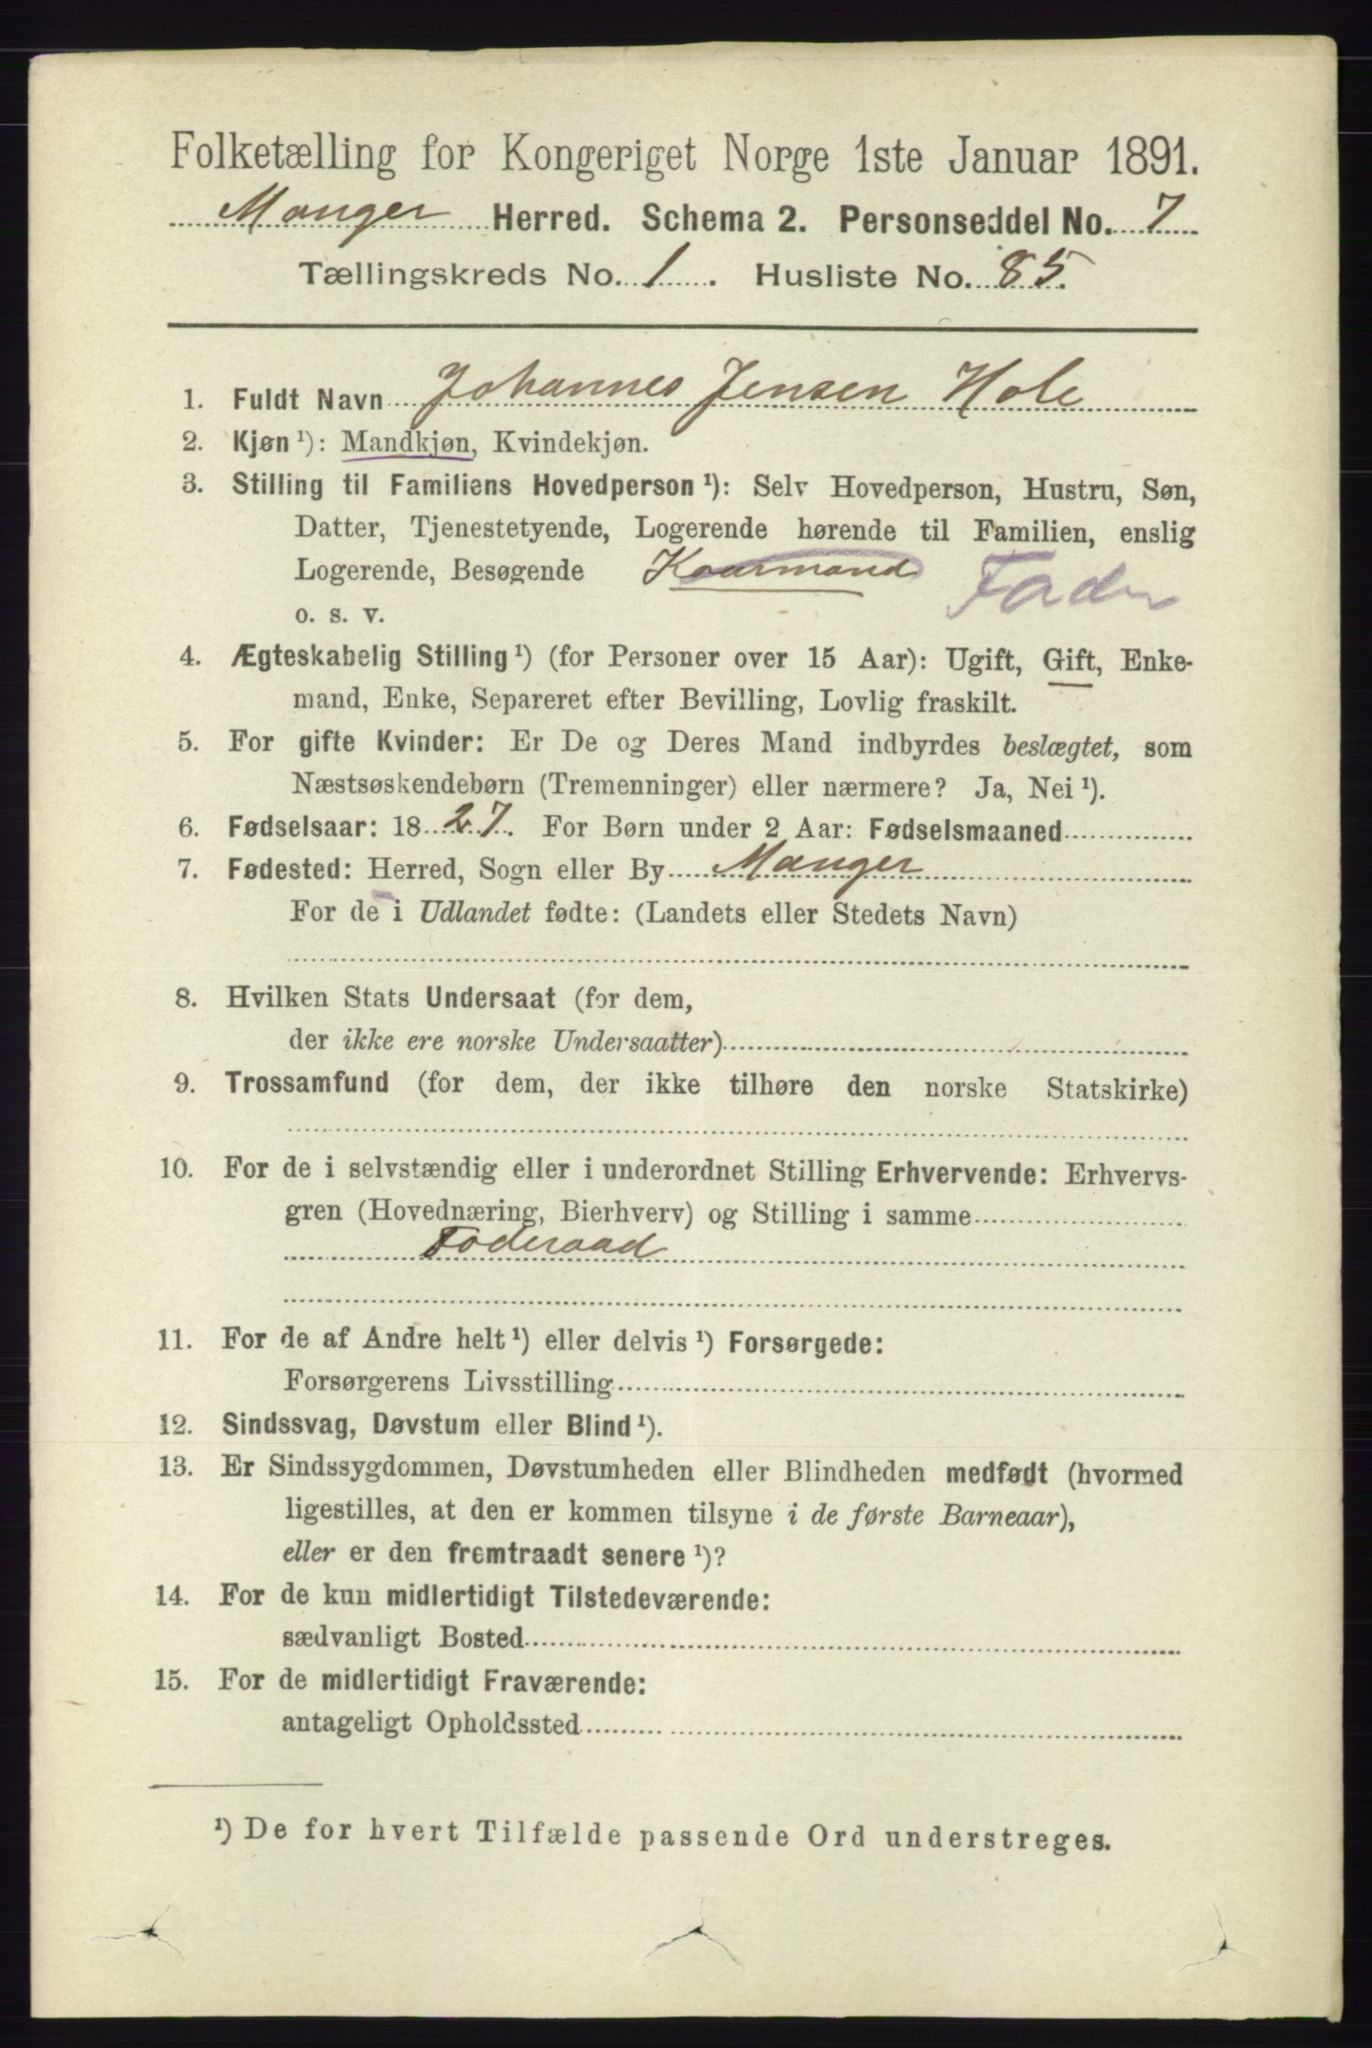 Folketælling for Kongeriget Norge 1ste Januar 1891.
Manger Herred. Schema 2. Personseddel No. 7
Tællingskreds No. 1. Husliste No. 85.
1. Fuldt Navn Johannes Jensen Hole
2. Kjøn ¹): Mandkjøn, Kvindekjøn.
3. Stilling til Familiens Hovedperson ¹): Selv Hovedperson, Hustru, Søn,
Datter, Tjenestetyende, Logerende hørende til Familien, enslig
Logerende, Besøgende Kaarmand Fader
o. s. v.
4. Ægteskabelig Stilling ¹) (for Personer over 15 Aar): Ugift, Gift, Enke-
mand, Enke, Separeret efter Bevilling, Lovlig fraskilt.
5. For gifte Kvinder: Er De og Deres Mand indbyrdes beslægtet, som
Næstsøskendebørn (Tremenninger) eller nærmere? Ja, Nei ¹).
6. Fødselsaar: 1827. For Børn under 2 Aar: Fødselsmaaned
7. Fødested: Herred, Sogn eller By Manger
For de i Udlandet fødte: (Landets eller Stedets Navn)
8. Hvilken Stats Undersaat (for dem,
der ikke ere norske Undersaatter)
9. Trossamfund (for dem, der ikke tilhøre den norske Statskirke)
10. For de i selvstændig eller i underordnet Stilling Erhvervende: Erhvervs-
gren (Hovednæring, Bierhverv) og Stilling i samme
Foderaad
11. For de af Andre helt ¹) eller delvis ¹) Forsørgede:
Forsørgerens Livsstilling
12. Sindssvag, Døvstum eller Blind ¹).
13. Er Sindssygdommen, Døvstumheden eller Blindheden medfødt (hvormed
ligestilles, at den er kommen tilsyne i de første Barneaar),
eller er den fremtraadt senere ¹)?
14. For de kun midlertidigt Tilstedeværende:
sædvanligt Bosted
15. For de midlertidigt Fraværende:
antageligt Opholdssted
¹) De for hvert Tilfælde passende Ord understreges.